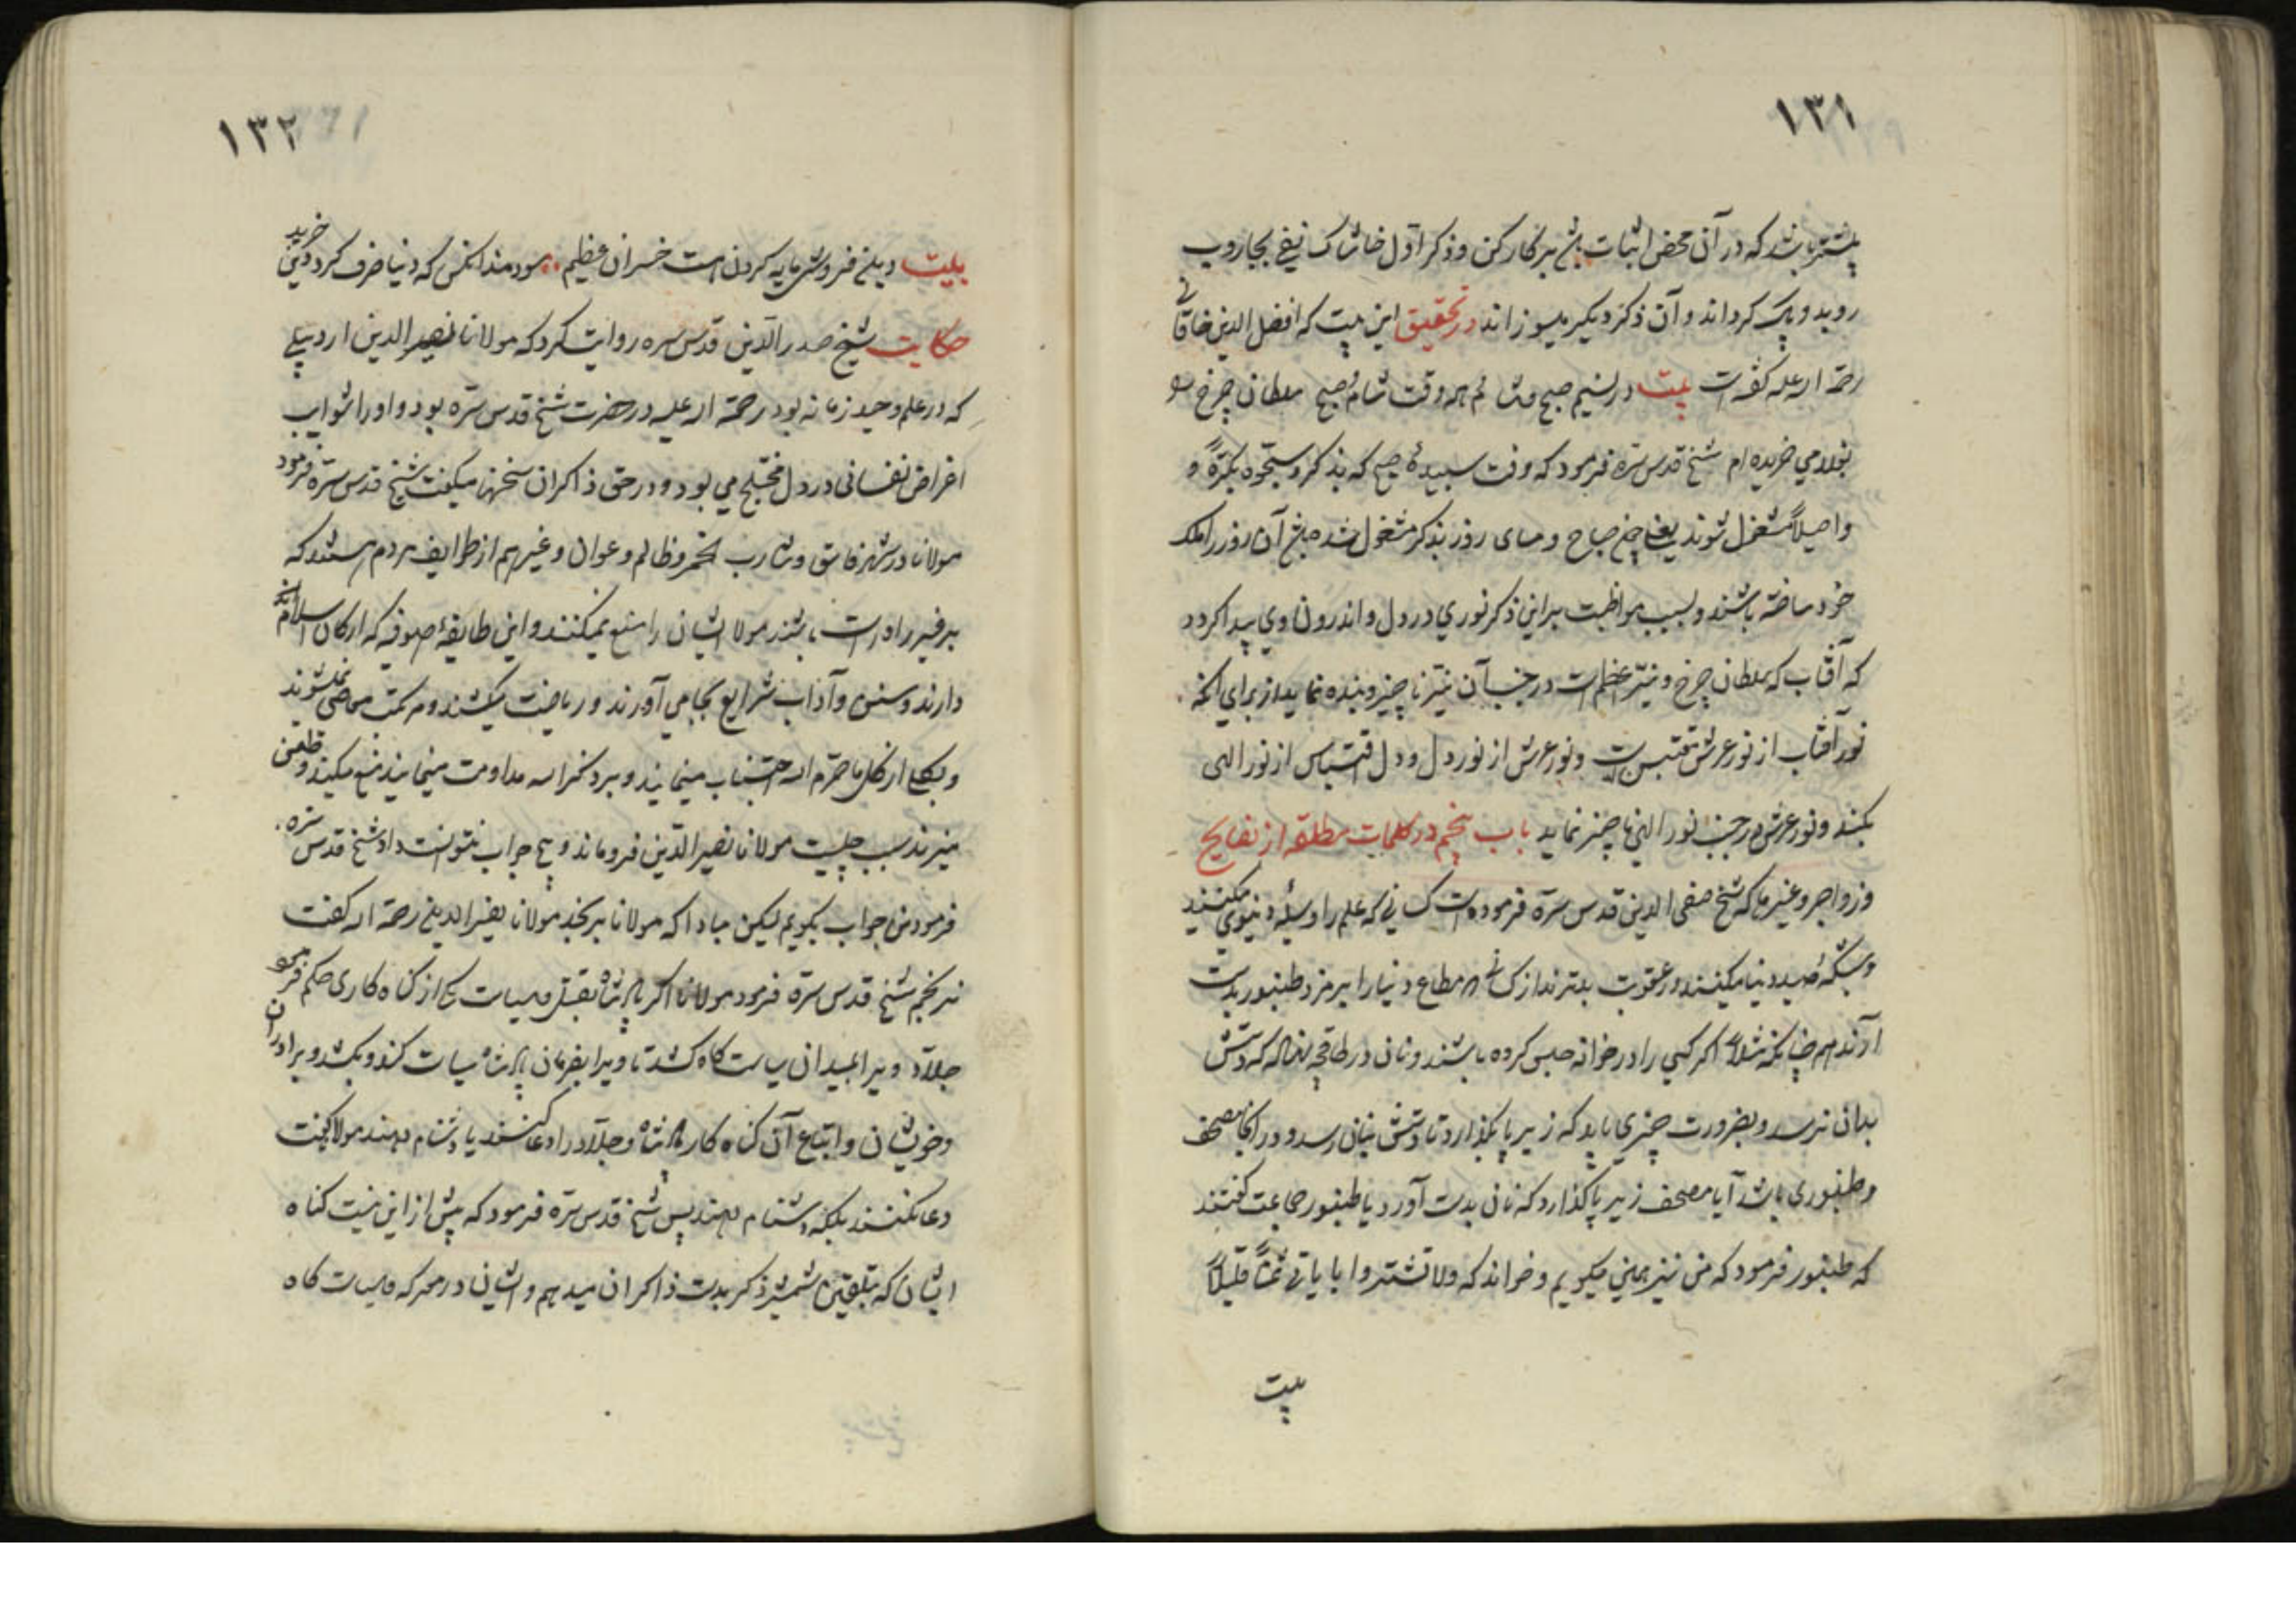 ۱۳۱
بیشتر باشد که در آن محض اثبات بی برکار کن و ذکر اول خاشاک نفی بجاروب
روبد و پاک کرداند و آن ذکر دیکر میسوزاند در تحقیق این بیت که افضل الدین خاقانی
رحمة الله علیه کفته است بیت در نسیم صبح وش همه وقت شام صبح سلطان چرخ
بغلامی خریده ام شیخ قدس سره فرمود که وقت سپیدهٔ صبح که بذکر و سبحوه بکرة و
واصیلاً مشغول شوند یعنی صباح و مسای روز بذکر مشغول شده آن روز را ملک
خود ساخته باشند و بسبب مواظبت بر این ذکر نوری در دل و اندرون وی پیدا کردد
که آفتاب که سلطان چرخ و نیر اعظم است در جنب آن نیر ناچیز و بنده نماید از برای آنکه
نور آفتاب از نور عرش مقتبس است و نور عرش از نور دل و دل اقتباس از نور الهی
بکند و نور عرش در جنب نور الهی ناچیز نماید باب پنجم در کلمات مطلقه از نصایح
و زواجر و غیرها که شیخ صفی الدین قدس سره فرموده است کسانی که علم را وسیلهٔ دنیوی میکنند
و شبکهٔ صید دنیا میکنند در عقوبت بدترند از کسانی که مطاع دنیا را بر مزد طنبور بدست
آرند همچنانکه مثلاً اکر کسی را در خانه حبس کرده باشند و نان در طاقچه نهاله که دستش
بدان نرسد و بضرورت چیزی باید که زیر پا بکذارد تا دستش بنان رسد و در آنجا مصحف
و طنبوری باشد آیا مصحف زیر پا کذارد که نان بدست آورد یا طنبور جماعت کفتند
که طنبور فرمود که من نیز همین میکویم و خواند که ولا تشتروا بایاتی ثمناً قلیلاً
بیت
۱۳۲
بیت دین فروش مایه کردن هست خسران عظیم سودمند آنکس که دنیا صرف کرد و دین خرید
حکایت شیخ صدر الدین قدس سره روایت کرد که مولانا نصیر الدین اردبیلی
که در علم وحید زمانه بود رحمة الله علیه در حضرت شیخ قدس سره بود و او را شواب
اغراض نفسانی در دل مختلج می بود و در حق ذاکران سخنها میکفت شیخ قدس سره فرمود
مولانا در شهر فاسق و شارب الخمر و ظالم و عوان و غیرهم از طرایف مردم هستند که
بر غیر راه راست باشند مولانا ایشان را منع نمیکنند و این طایفهٔ صوفیه که ارکان اسلام
دارند و سنن و آداب شرایع بجا می آورند و ریاضت میکشند و مرتکب معاصی نمیشوند
و بکلی از کل ما حرم الله اجتناب مینمایند و بر ذکر الله مداومت مینمایند منع میکنید و طعن
میزند سبب چیست مولانا نصیر الدین فرو ماند و هیچ جواب نتوانست داد شیخ قدس سره
فرمود من جواب بکویم لیکن مبادا که مولانا برنجد مولانا نصیر الدین رحمة الله کفت
نرنجم شیخ قدس سره فرمود مولانا اکر پادشاه بقتل و سیاست یکی از کناه کاری حکم فرمود
جلاد ویرا بمیدان سیاست کاه کشد تا ویرا بفرمان پادشاه سیاست کند و بکشد و برادران
و خویشان و اتباع آن کناه کار پادشاه و جلاد را دعا کنند یا دشنام دهند مولانا کفت
دعا نکنند بلکه دشنام دهند پس شیخ قدس سره فرمود که پیش از این نیست کناه
ایشان که بتلقین شمشیر ذکر بدست ذاکران میدهم و ایشان در معرکه سیاست کاه